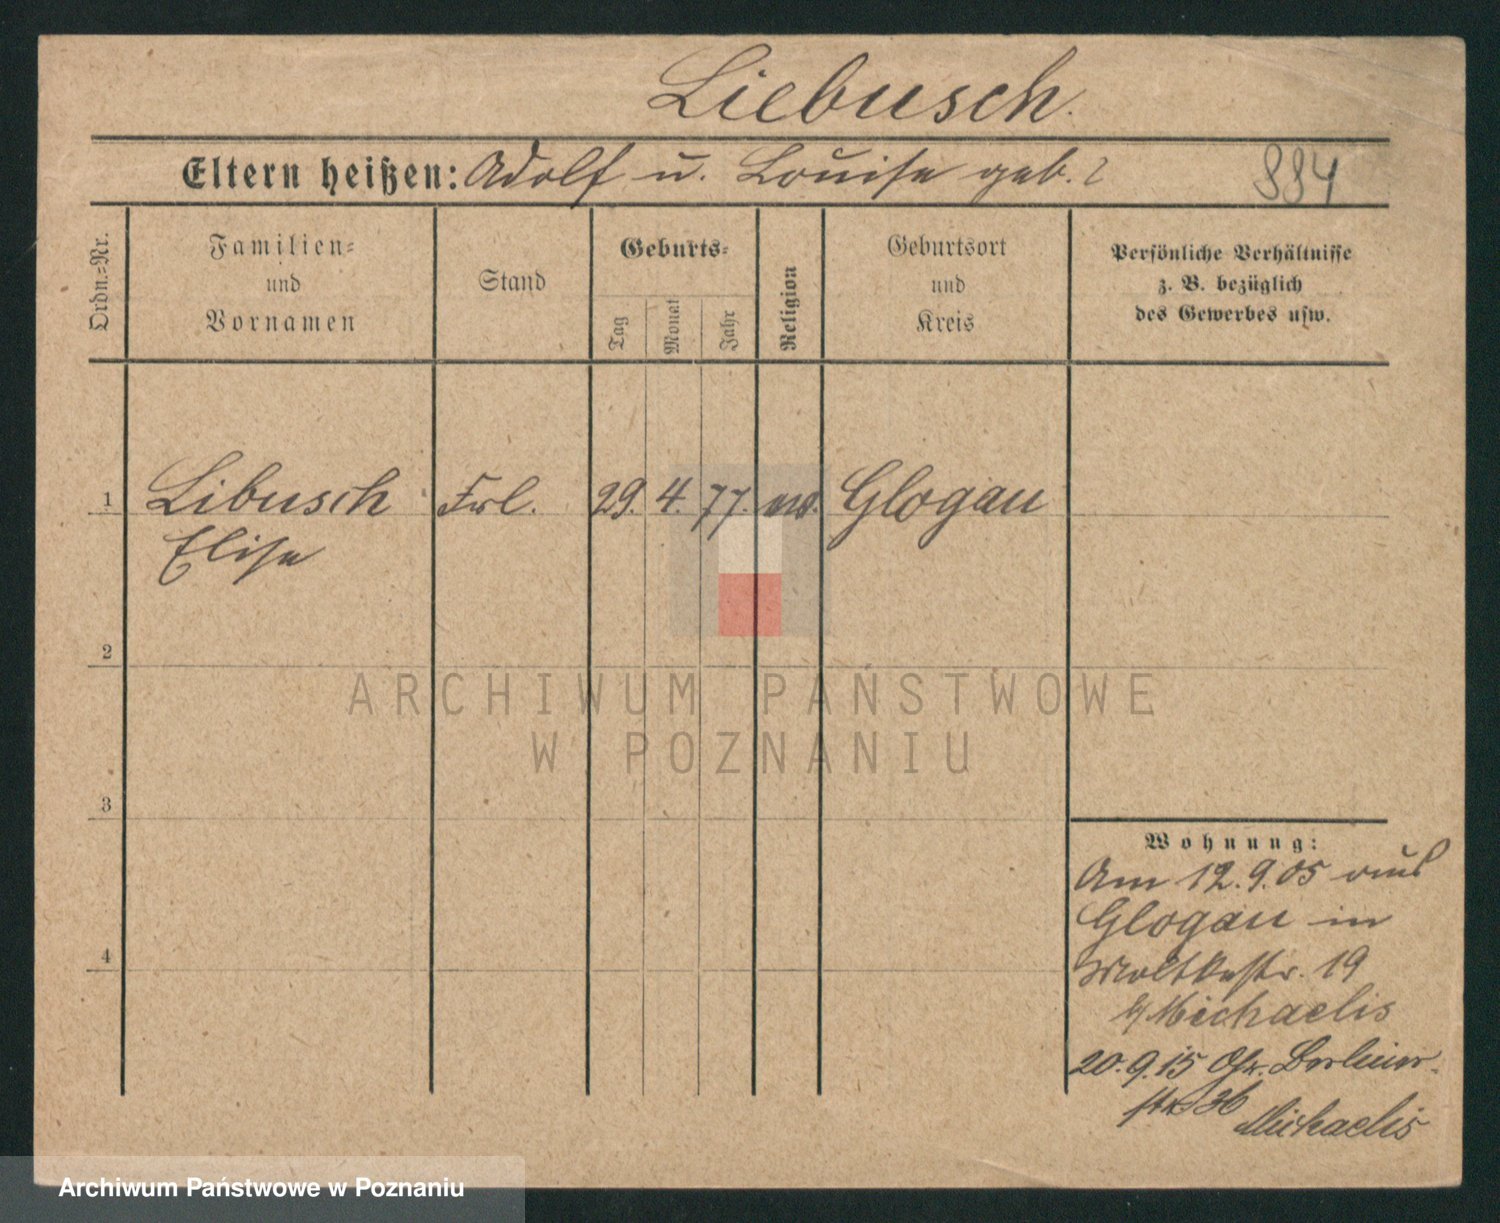 Liebusch.
Eltern heißen: Adolf u. Louise geb. ?
884
Ordn.-Nr.
Familien-
und
Vornamen
Stand
Geburts-
Tag
Monat
Jahr
Religion
Geburtsort
und
Kreis
Persönliche Verhältnisse
z. B. bezüglich
des Gewerbes usw.
1 Libusch Frl. 29. 4. 77. ev. Glogau
Elise
2
ARCHIWUM PAŃSTWOWE
W POZNANIU
3
4
Wohnung:
Am 12.9.05 aus
Glogau in
Moltkestr. 19
b/ Michaelis
20.9.15 Gr. Berliner-
str 36
Michaelis
Archiwum Państwowe w Poznaniu